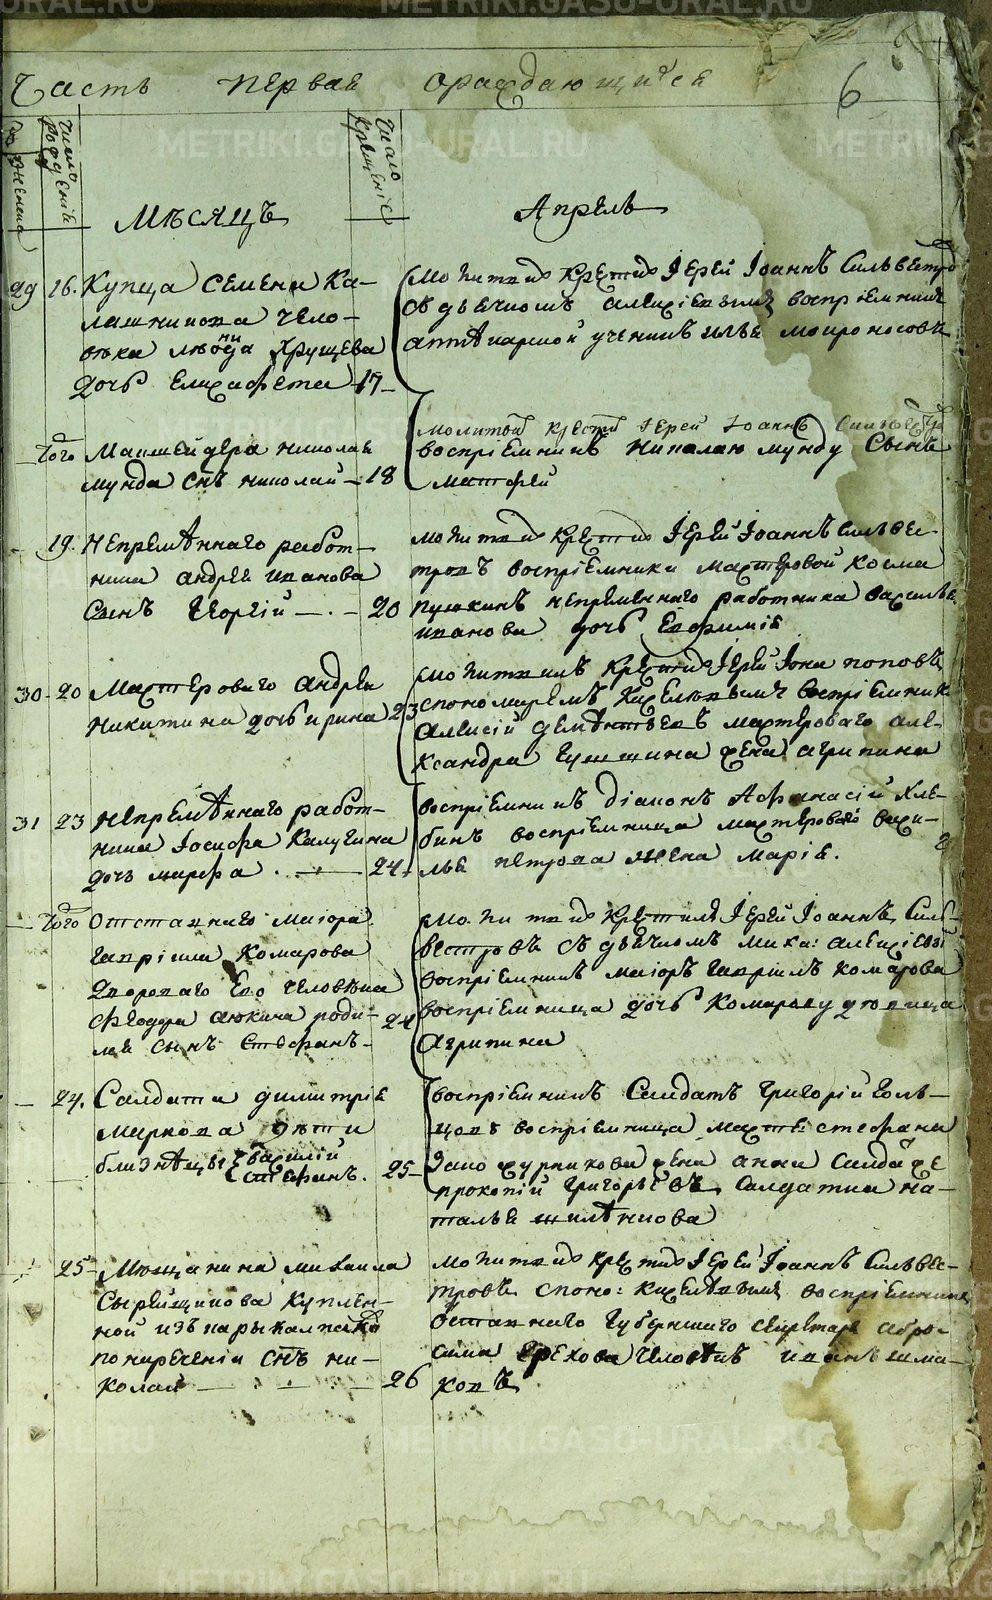 Часть первая ораждающихсе 6
Число рожденiе
женска
Число крещенiе
Мѣсяцъ Апрель
29 16. Купца Семена Ка-
лашникова чело-
вѣка Хрущева
дочь Елизафета 17
Молитвил крестил Iерей Iоаннъ Сильвестро
съ дьячкомъ Алексiевымъ воспрiемникъ
аптекарской ученикъ Мохроносовъ
того Николае
мунда снъ николай 18
молитвил крестил Iерей Iоаннъ Сильвестр
воспрiемникъ Николаю мунду Сынъ
матфей
19. Непремѣннаго работ-
ника андрея иванова
Сынъ Георгiй 20
молитвил крестил Iерей Iоаннъ Сильвес-
тровъ воспрiемники мастеровой Козма
Пушкинъ непременнаго работника василья
иванова дочь Евфимiя
30 20 Мастероваго андрея
Никитина дочь ирина 23
Молитвилъ крестил Iерей Iона поповъ
спономаремъ Киселювымъ воспрiемник
Алексiй Дементьевъ мастероваго але-
ксандра жена агрипина
31 23 непремѣннаго работ-
ника Iосифа Калугина
дочь марфа 24
воспрiемникъ дiаконъ Афанасiй Хле-
бинъ воспрiемница мастероваго васи-
лья петрова жена Марiя.
того Отставнаго маiора
гаврiила Комарова
двороваго Его человѣка
Феодора аюкина роди-
лся сынъ Стефанъ 24
Молитвил крестилъ Iерей Iоаннъ Силь-
вестровъ съ дьячкомъ мика: алексiевы
воспрiемникъ маiоръ гаврiилъ комарова
воспрiемница дочь комарову девица
Агрипина
24. Салдата димитрiя
маркова дети
близнецы василiй
Стефанъ. 25
воспрiемникъ Салдатъ григорiй голь-
цовъ воспрiемница маст: стефана
жена анна Салда же
прокопiй григорьевъ, Салдатка на-
талья
25 Мещанина михаила
Сырейщикова куплен-
ной изъ каракалпако
понаречѣнiи снъ ни-
колай 26
молитвил крестил Iерей Iоаннъ Сильвес-
тровъ споно: Киселевымъ воспрiемник
Оставнаго Губернскаго секретаря абро-
сима Грехова человѣкъ иванъ шма-
ковъ
METRIKI.GASO-URAL.RU